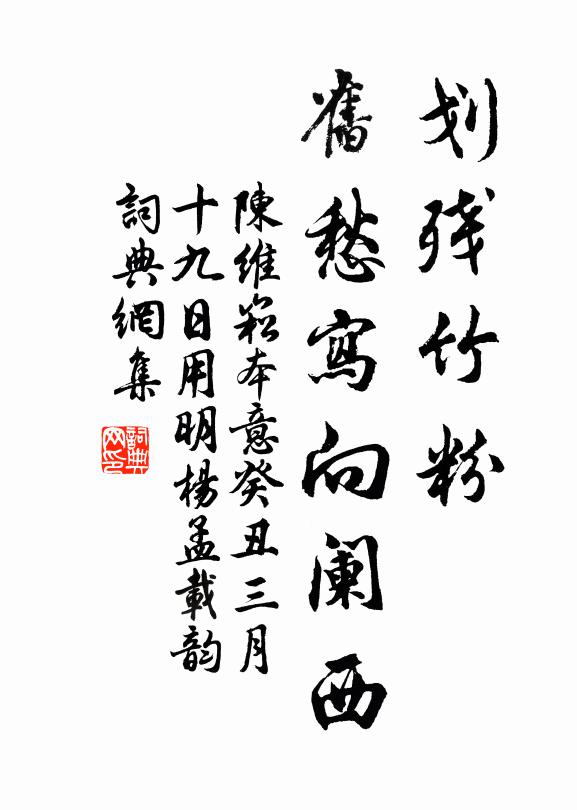 划残竹粉
舊愁寫向阑西
陳維崧本意癸丑三月
十九日用明楊孟載韵
詞典網集
詞典网印